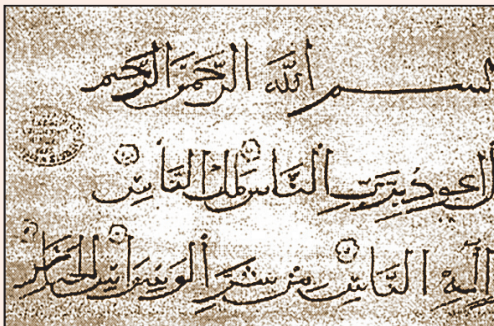 بسم الله الرحمن الرحيم
ل اعوذ برب الناس ملك الناس
اله الناس من شر الوسواس الخناس